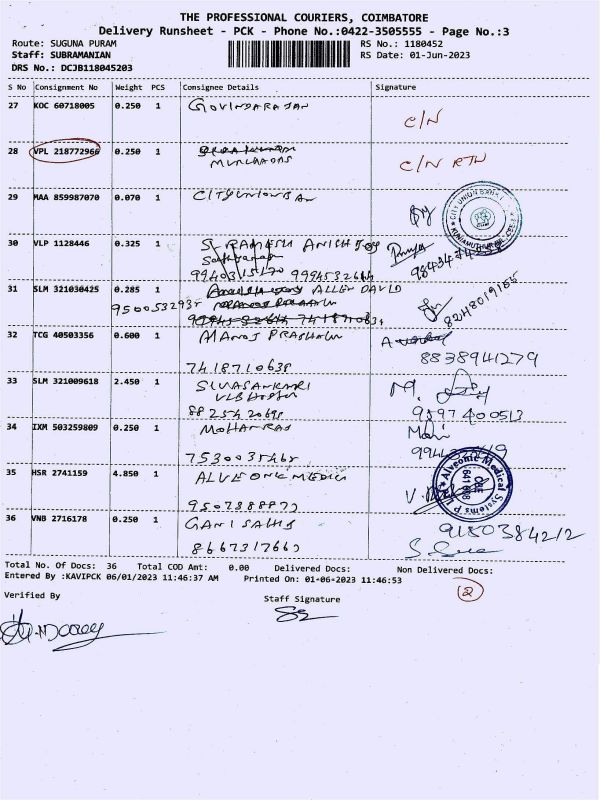 THE PROFESSIONAL COURIERS, COIMBATORE
Delivery Runsheet - PCK - Phone No.:0422-3505555 - Page No.:3
Route: SUGUNA PURAM RS No.: 1180452
Staff: SUBRAMANIAN RS Date: 01-Jun-2023
DRS No.: DCJB118045203
S No Consignment No Weight PCS Consignee Details Signature
27 KOC 60718005 0.250 1 GOVINDARAJAN C/N
28 VPL 218772966 0.250 1
C/N RTN
29 MAA 859987070 0.070 1 CITYUNIONBAN
CITY UNION BANK
30 VLP 1128446 0.325 1 RAMESH ANISH JOY
9940315120 9994532644
31 SLM 321030425 0.285 1 ALLEN DAVID
8248019165
32 TCG 40503356 0.600 1 MANOJ PRABHAKU
7418710638 8838941279
33 SLM 321009618 2.450 1 SIVASANKARI
VLB HOSTEL
8825420698 9597400513
34 IXM 503259809 0.250 1 MOHANRAJ Mohan
7530035465
35 HSR 2741159 4.850 1 ALVEONE MEDICU
Alveonic Medical Systems P
CBE
641 008
36 VNB 2716178 0.250 1 GANISAHIS 9180384212
8667317667
Total No. Of Docs: 36 Total COD Amt: 0.00 Delivered Docs: Non Delivered Docs:
Entered By :KAVIPCK 06/01/2023 11:46:37 AM Printed On: 01-06-2023 11:46:53
2
Verified By Staff Signature